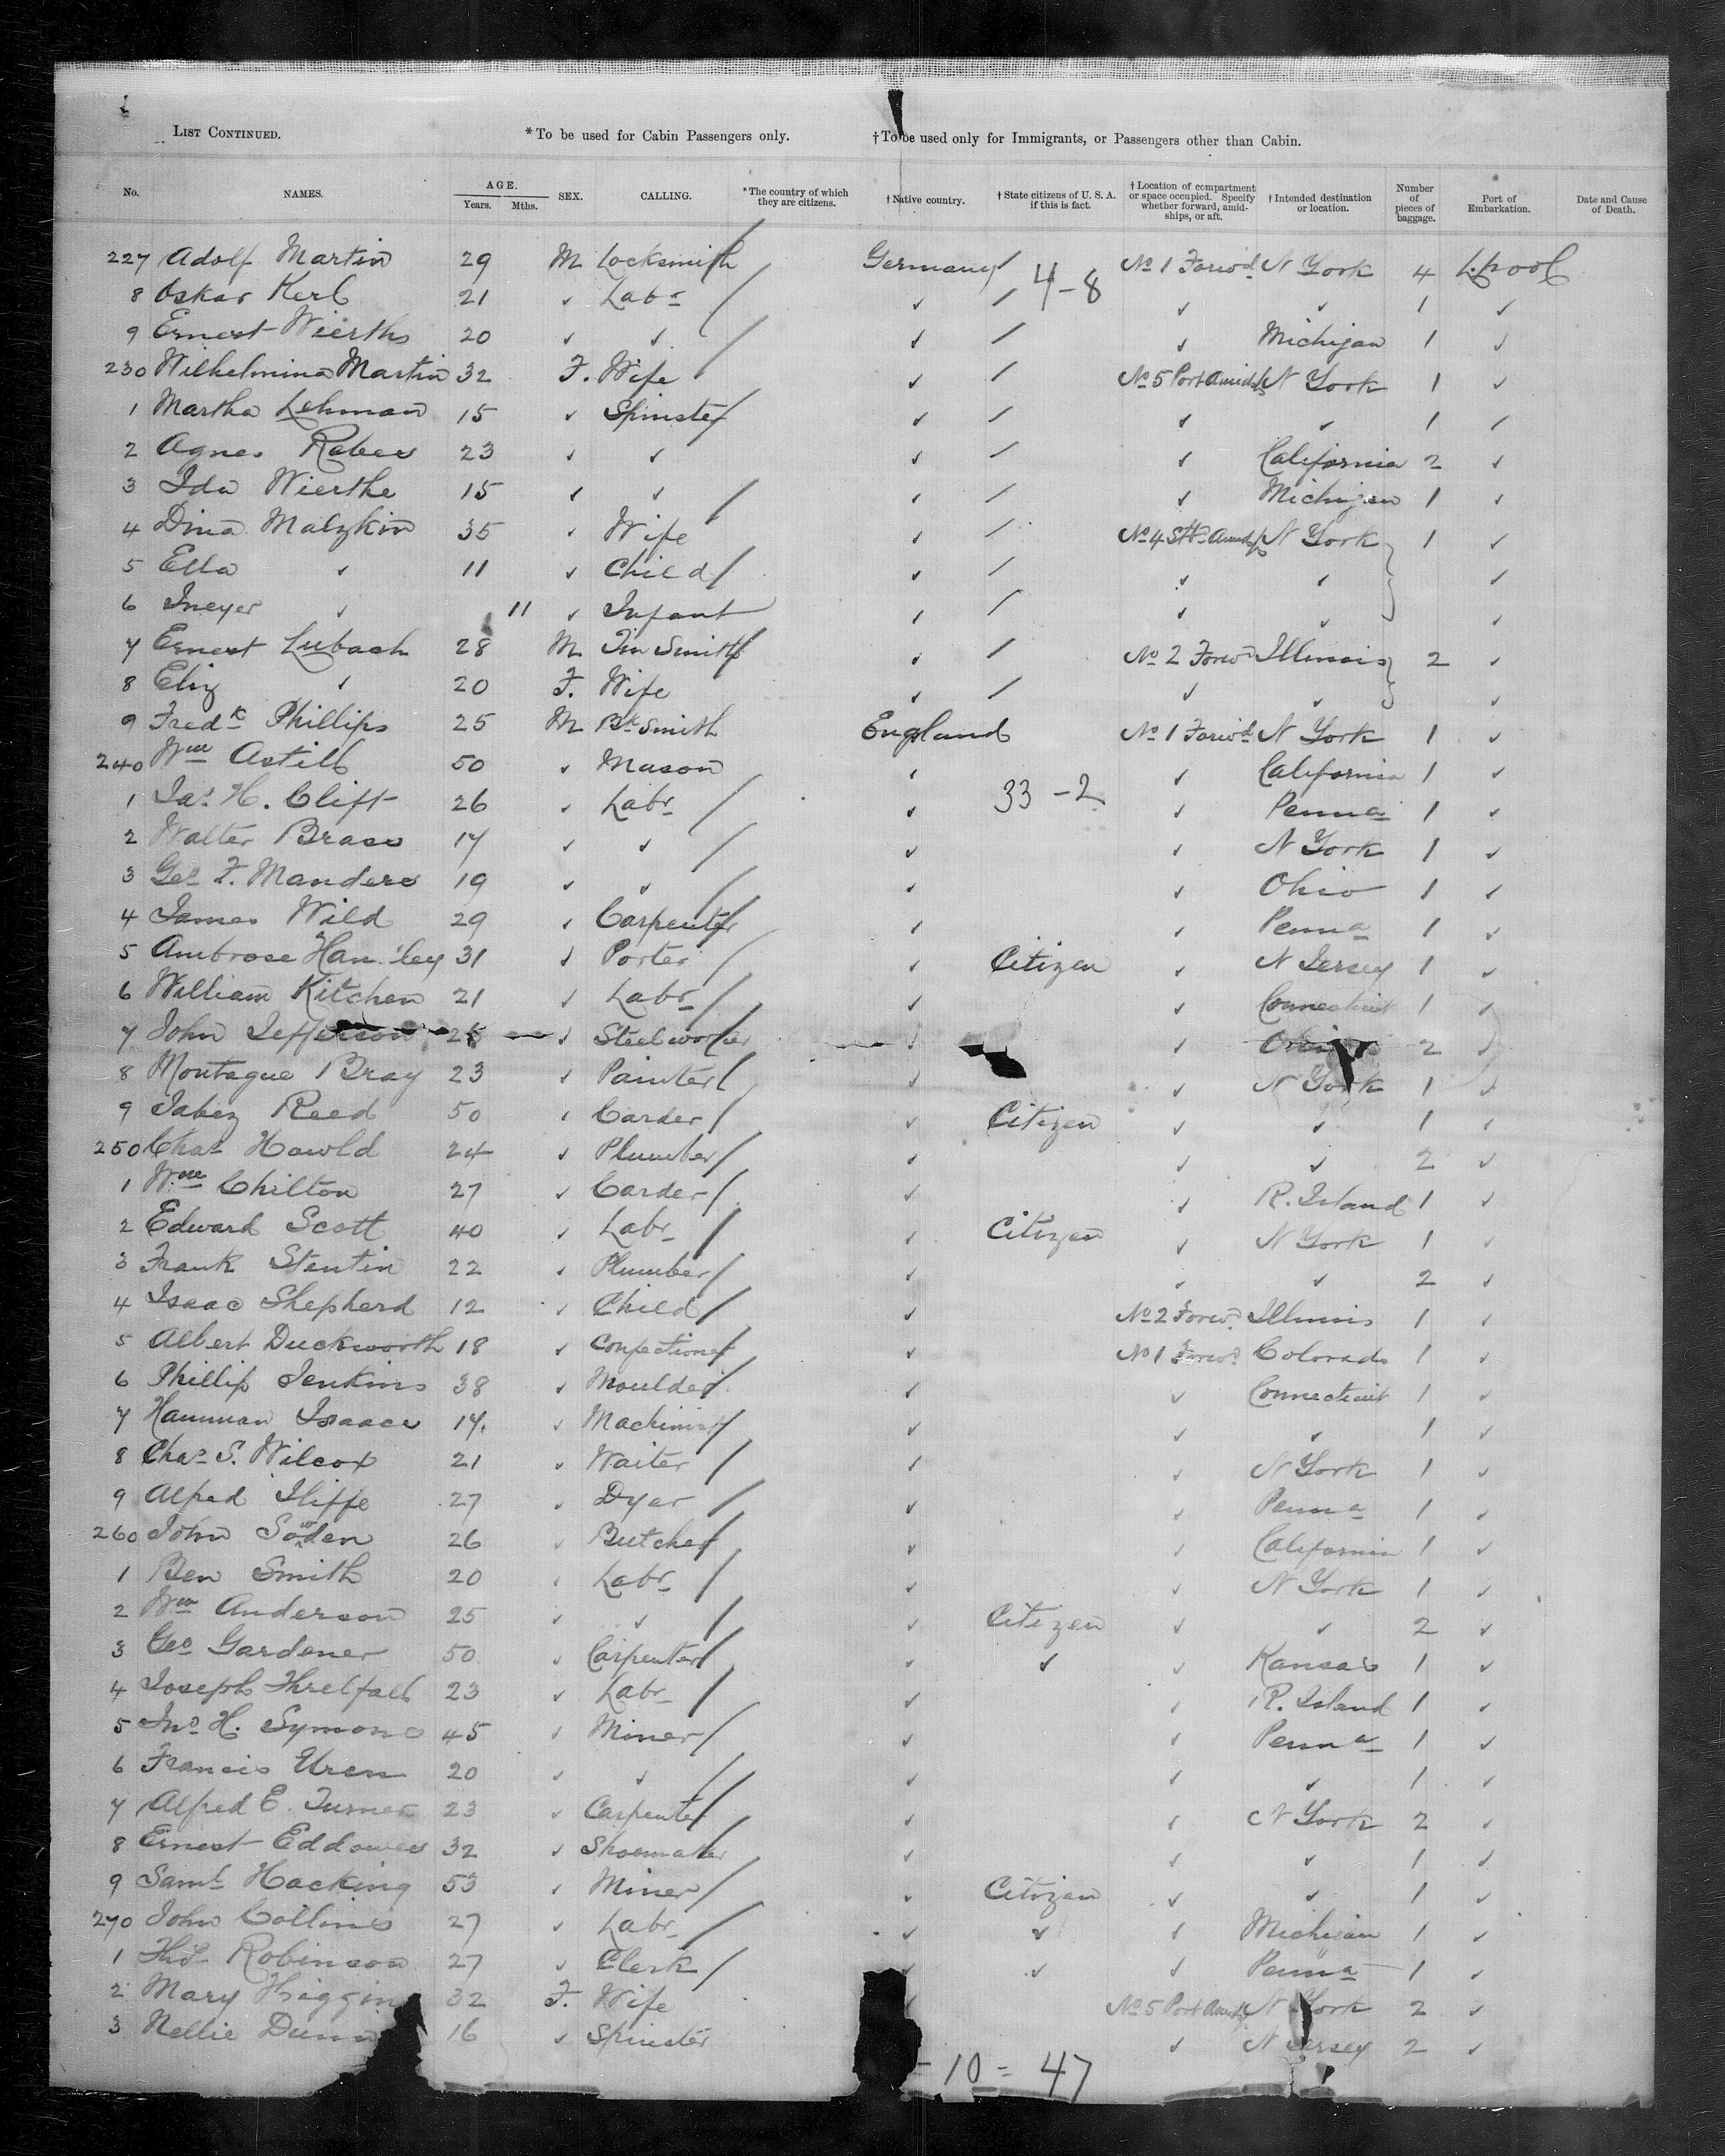 LIST CONTINUED. *To be used for Cabin Passengers only. †To be used only for Immigrants, or Passengers other than Cabin.
No. NAMES. AGE. Years. Mths. SEX. CALLING. *The country of which they are citizens. †Native country. †State citizens of U. S. A. if this is fact. †Location of compartment or space occupied. Specify whether forward, amidships, or aft. †Intended destination or location. Number of pieces of baggage. Port of Embarkation. Date and Cause of Death.
227 Adolf Martin 29 M Locksmith Germany / 4-8 No 1 Forwd N York 4 L.pool
8 Oskar Kerl 21 ✓ Labr ✓ / ✓ ✓ 1 ✓
9 Ernest Wierths 20 ✓ ✓ ✓ / ✓ Michigan 1 ✓
230 Wilhelmina Martin 32 F. Wife ✓ / No 5 Port Amidsh N York 1 ✓
1 Martha Lehman 15 ✓ Spinster ✓ / ✓ ✓ 1 ✓
2 Agnes 23 ✓ ✓ ✓ / ✓ California 2 ✓
3 Ida Wierthe 15 ✓ ✓ ✓ / ✓ Michigan 1 ✓
4 Dina Malzkin 35 ✓ Wife ✓ / No 4 Amidsh N York 1 ✓
5 Ella ✓ 11 ✓ Child ✓ / ✓ ✓ ✓
6 ✓ 11 ✓ Infant ✓ / ✓ ✓ ✓
7 Ernest Lubach 28 M Tin Smith ✓ / No 2 Forwd Illinois 2 ✓
8 Eliz ✓ 20 F. Wife ✓ / ✓ ✓ ✓
9 Fredk Phillips 25 M Bk Smith England No 1 Forwd N York 1 ✓
240 Wm Astill 50 ✓ Mason ✓ ✓ California 1 ✓
1 Jas H. Clift 26 ✓ Labr ✓ 33-2 ✓ Penna 1 ✓
2 Walter Brass 17 ✓ ✓ ✓ ✓ N York 1 ✓
3 Geo F. Manders 19 ✓ ✓ ✓ ✓ Ohio 1 ✓
4 James Wild 29 ✓ Carpenter ✓ ✓ Penna 1 ✓
5 Ambrose Han ley 31 ✓ Porter ✓ Citizen ✓ N Jersey 1 ✓
6 William Kitchen 21 ✓ Labr ✓ ✓ Connecticut 1 ✓
7 John Jefferson ✓ Steelworker ✓ ✓ 2 ✓
8 Montague Bray 23 ✓ Painter ✓ ✓ N York 1 ✓
9 Jabez Reed 50 ✓ Carder ✓ Citizen ✓ ✓ 1 ✓
250 Chas Howld 24 ✓ Plumber ✓ ✓ ✓ 2 ✓
1 Wm Chilton 27 ✓ Carder ✓ ✓ R. Island 1 ✓
2 Edward Scott 40 ✓ Labr ✓ Citizen ✓ N York 1 ✓
3 Frank Stentin 22 ✓ Plumber ✓ ✓ ✓ 2 ✓
4 Isaac Shepherd 12 ✓ Child ✓ No 2 Forwd Illinois 1 ✓
5 Albert Duckworth 18 ✓ Confectioner ✓ No 1 Forwd Colorado 1 ✓
6 Phillip Jenkins 38 ✓ Moulder ✓ ✓ Connecticut 1 ✓
7 Hamman Isaacs 17. ✓ Machinist ✓ ✓ ✓ 1 ✓
8 Chas S. Wilcox 21 ✓ Waiter ✓ ✓ N York 1 ✓
9 Alfred Iliffe 27 ✓ Dyer ✓ ✓ Penna 1 ✓
260 John Sowden 26 ✓ Butcher ✓ ✓ California 1 ✓
1 Ben Smith 20 ✓ Labr ✓ ✓ N York 1 ✓
2 Wm Anderson 25 ✓ ✓ ✓ Citizen ✓ ✓ 2 ✓
3 Geo Gardener 50 ✓ Carpenter ✓ ✓ ✓ Kansas 1 ✓
4 Joseph Threlfall 23 ✓ Labr ✓ ✓ R. Island 1 ✓
5 Jno H. Symons 45 ✓ Miner ✓ ✓ Penna 1 ✓
6 Francis Uren 20 ✓ ✓ ✓ ✓ ✓ 1 ✓
7 Alfred E. Turner 23 ✓ Carpenter ✓ ✓ N York 2 ✓
8 Ernest Eddowes 32 ✓ Shoemaker ✓ ✓ ✓ 1 ✓
9 Saml Hacking 53 ✓ Miner ✓ Citizen ✓ ✓ 1 ✓
270 John Collins 27 ✓ Labr ✓ ✓ ✓ Michigan 1 ✓
1 Thos Robinson 27 ✓ Clerk ✓ ✓ ✓ Penna 1 ✓
2 Mary Higgin 32 F. Wife ✓ No 5 Port Amidsh N York 2 ✓
3 Nellie Dunn 16 ✓ Spinster ✓ N Jersey 2 ✓
- 10 = 47